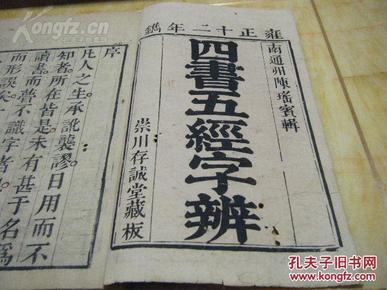 雍正十二年鐫
南通州陳瑤賓輯
四書五經字辨
崇川存誠堂藏板
序
凡人之生承訛襲謬日用而不
知者所在皆是未有甚于名爲
讀書而嘗不識字者
而形談
孔夫子旧书网